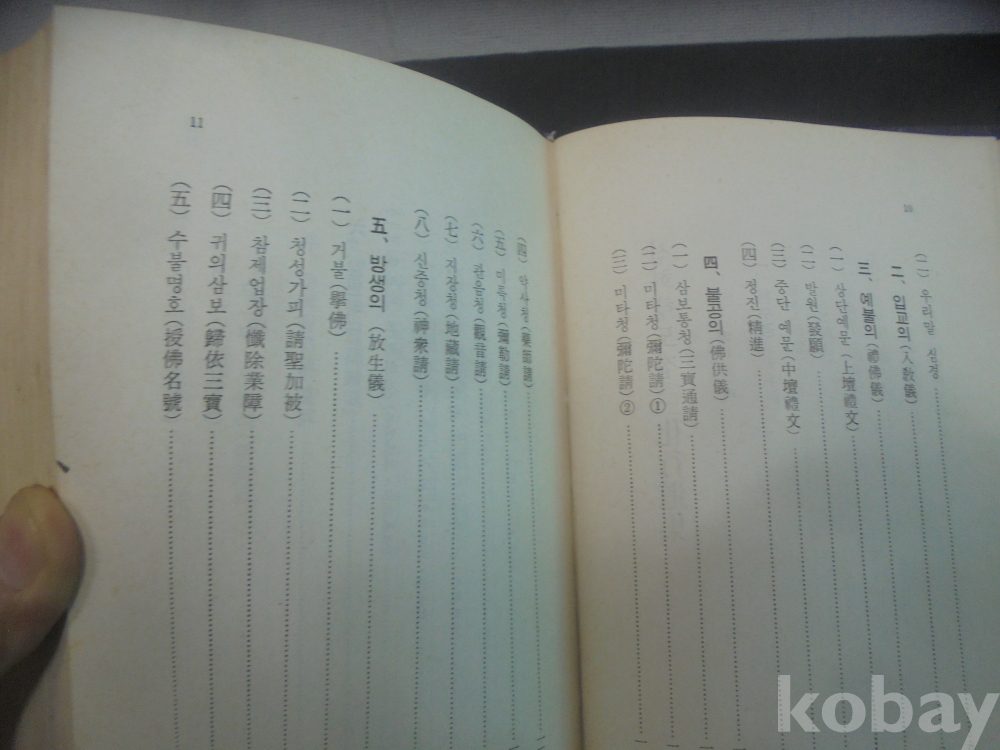 16
(二) 우리말 심경
二、입교의 (入敎儀)
三、예불의 (禮佛儀)
(一) 상단예문 (上壇禮文)
(二) 발원 (發願)
(三) 중단 예문 (中壇禮文)
(四) 정진 (精進)
四、불공의 (佛供儀)
(一) 삼보통청 (三寶通請)
(二) 미타청 (彌陀請) ①
(三) 미타청 (彌陀請) ②
(四) 약사청 (藥師請)
(五) 미륵청 (彌勒請)
(六) 관음청 (觀音請)
(七) 지장청 (地藏請)
(八) 신중청 (神衆請)
五、방생의 (放生儀)
(一) 거불 (擧佛)
(二) 청성가피 (請聖加被)
(三) 참제업장 (懺除業障)
(四) 귀의삼보 (歸依三寶)
(五) 수불명호 (授佛名號)
11
kobay